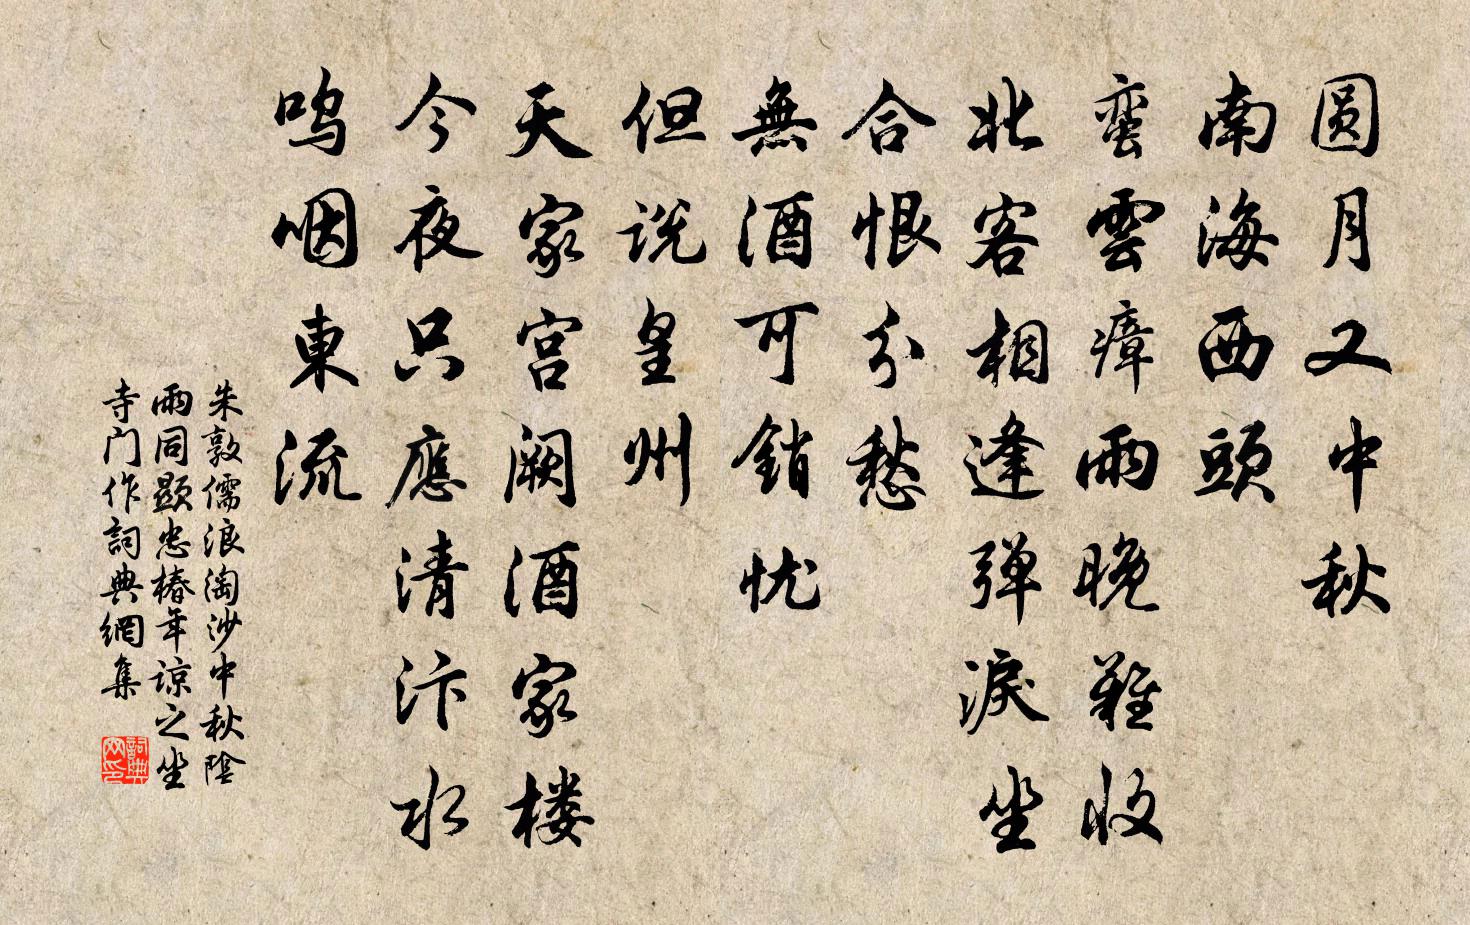 圆月又中秋
南海西頭
蛮雲瘴雨晚難收
北客相逢弹淚坐
合恨分愁
無酒可銷忧
但説皇州
天家宫阙酒家楼
今夜只應清汴水
呜咽東流
朱敦儒浪淘沙中秋陰
雨同顯忠椿年谅之坐
寺门作詞典網集
詞典
网印